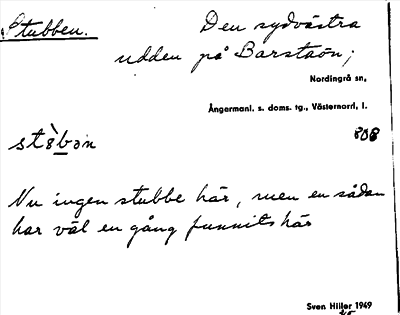 Stubben. Den sydvästra
udden på Barstaön;
Nordingrå sn,
Ångermanl. s. doms. tg., Västernorrl. l.
808
Nu ingen stubbe här, men en sådan
har väl en gång funnits här
Sven Hiller 1949